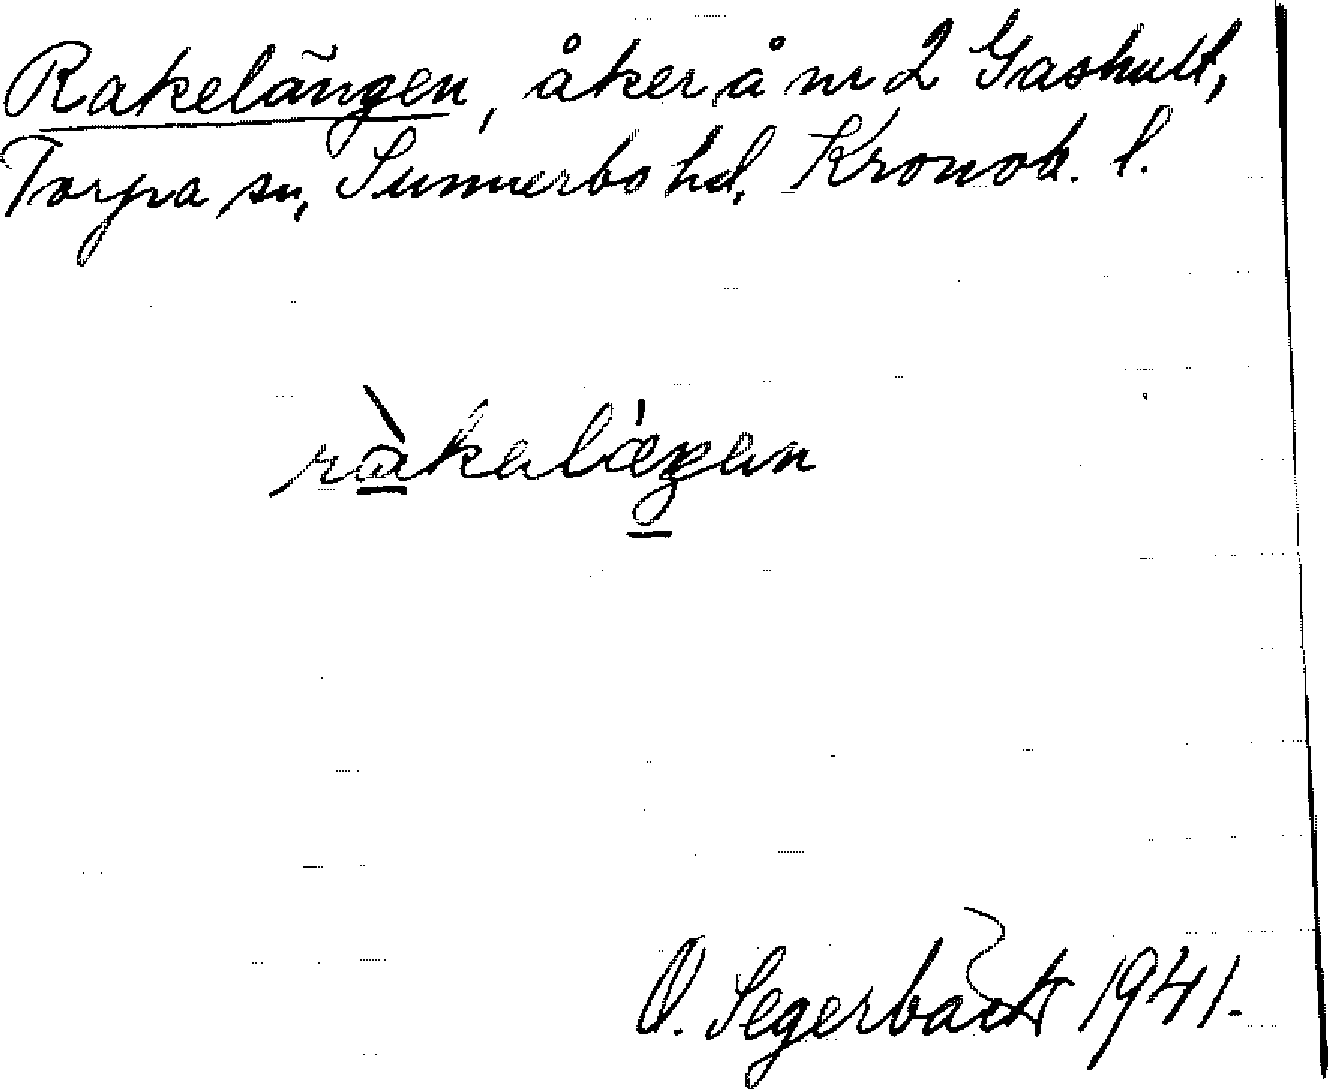 Rakelängen, åker å nr 2 Gashult,
Torpa sn, Sunnerbo hd, Kronob. l.
ràkalæŋan
O. Segerbäck 1941.